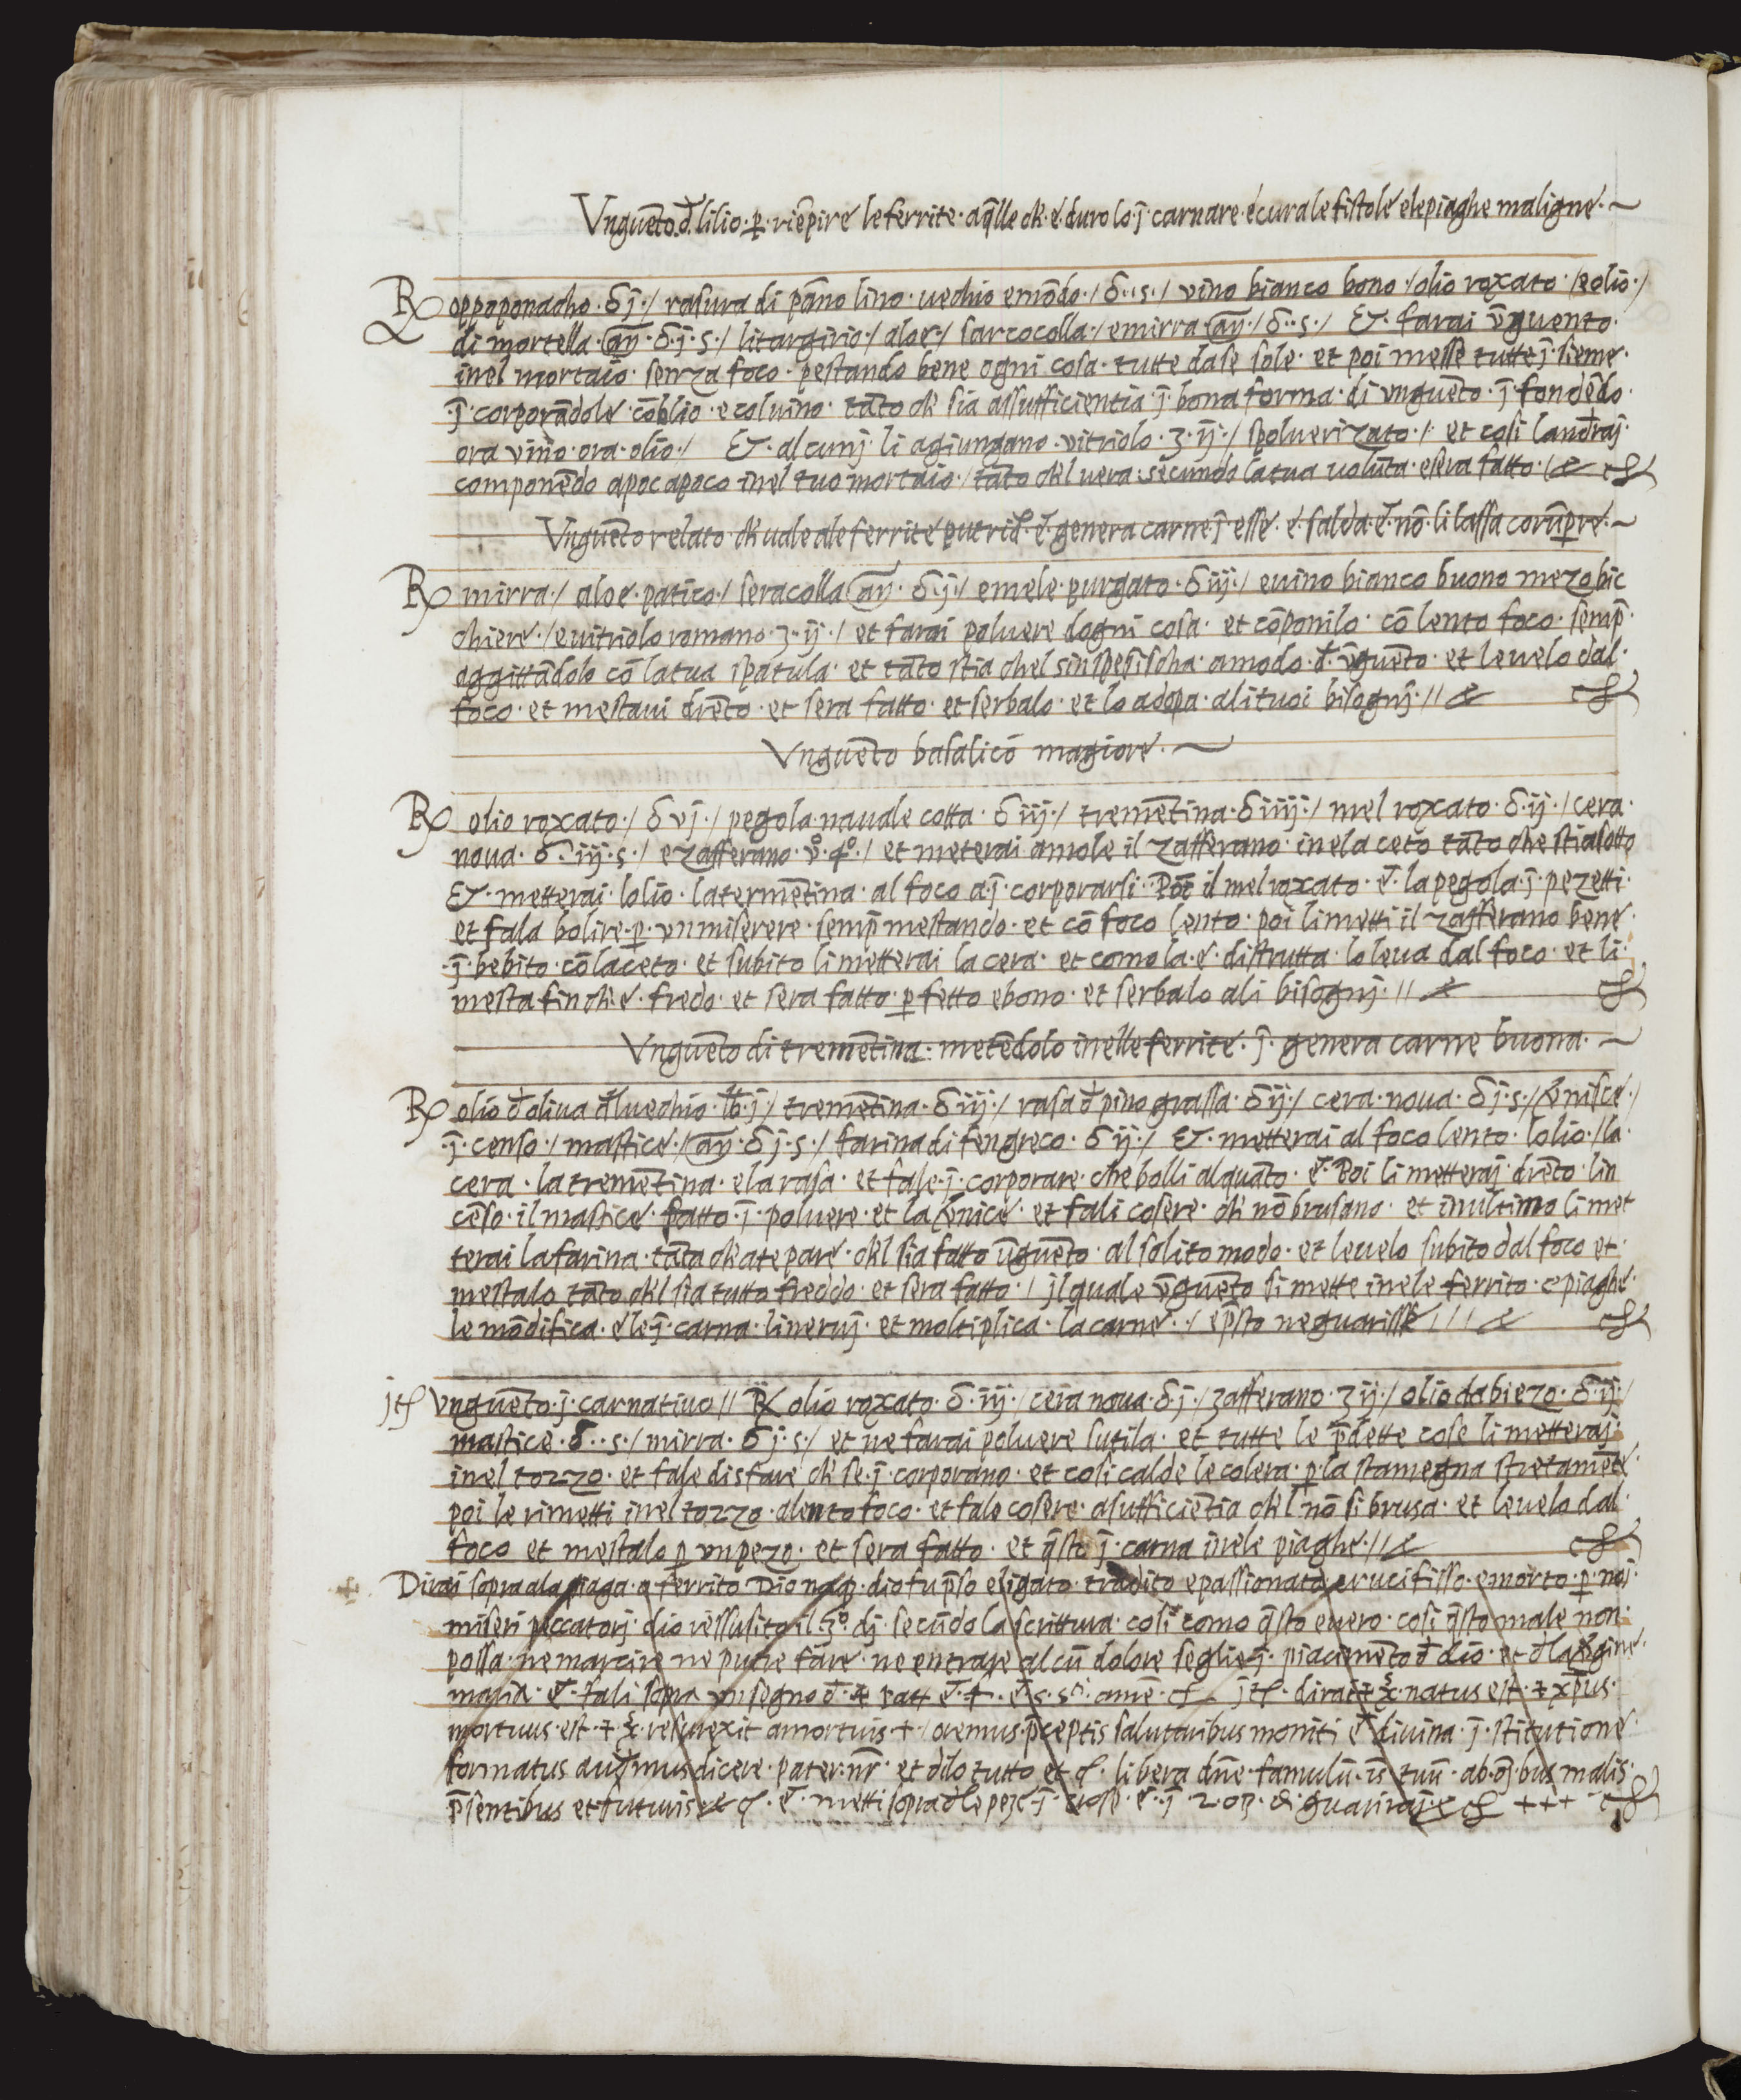 Vnguēto. đ. lilio. ꝑ. riēpire le ferrite. a q̄lle ch̄. e. duro lo. j̄. carnare. e cura le fistole e le piaghe maligne.
℞ oppoponacho. ʒ j./ rasura di pāno lino. uechio e mōdo./ ʒ..s./ vino bianco bono./ olio roxato./ e olio./
di mortella. aÿ. ʒ. j. s./ litargirio./ aloe./ sarcocolla./ e mirra aÿ./ ʒ..s./ Et. farai v̄guento.
inel mortaio. senza foco. pestando bene ogni cosa. tutte da se sole. et poi messe tutte j̄. sieme.
.j̄. corporādole. cō lolio. e col uino. tāto ch̄ sia assufficientia. j̄. bona forma. di vnguēto. j̄. fondēdo.
ora vino. ora. olio./ Et. alcunj. li agiungano. vitriolo. ʒ. ij./ spoluerizato./. et cosi landraj.
componēdo a poc a poco inel tuo mortaio./ tāto ch̄l uera. secundo la tua uolūta. e sera fatto./
Vnguēto relato. ch̄ uale ale ferrite putrid̄. e. genera carne j̄ esse. e. salda. e. nō. li lassa corūpre.
℞ mirra./ aloe. patico./ seracolla aÿ. ʒ. j./ e mele. purgato. ʒ iij./ e uino bianco buono mezo bic
chiere./ e uitriolo romano. ʒ. ij./ et farai poluere dogni cosa. et cōponilo. cō lento foco. semp̄.
aggittādolo cō la tua spatula. et tāto stia chel sinspesischa. a modo. đ. v̄guēto. et leuelo dal.
foco. et mestaui drēto. et sera fatto. et serbalo. et lo adoꝑa. ali tuoi bisognj. //
Vnguēto basalicō magiore.
℞ olio roxato./ ʒ vj./ pegola. nauale cotta. ʒ iij./ tremētina. ʒ iiij./ mel roxato. ʒ. ij./ cera.
noua. ʒ. iij. s./ e zafferano. v̊. 4̊./ et meterai a mole il zafferano. inel a ceto tāto che stia sotto
Et. metterai. lolio. la termētina. al foco a. j̄. corporarsi. Poi il mel roxato. e. la pegola. j̄. pezetti.
et fala bolire. ꝑ. vn miserere. semp̄ mestando. et cō foco lento. poi li metti il zafferano bene.
.j̄. bebito. cō laceto. et subito li metterai la cera. et como la. e. distrutta. lo leua dal foco. et li.
mesta fin ch̄. e. fredo. et sera fatto. ꝑfetto e bono. et serbalo ali bisognj. //
Vnguēto di tremētina. metēdolo inelle ferrite. j̄. genera carne buona.
℞ olio đ oliua đl uechio. lb. j/ tremētina. ʒ iij./ rasa đ pino grassa. ʒ ij./ cera. noua. ʒ j. s./ v̄nisce./
.j̄. censo./ mastice./ aÿ ʒ j. s./ farina di fengreco. ʒ ij./ Et. metterai al foco lento. lolio./ la.
cera. la tremētina. e la rasa. et fale. j̄. corporare. che bolli alquāto. e. Poi li metteraj. drēto. lin
cēso. il mastice. fatto. j̄. poluere. et la v̄nice. et fali cosere. ch̄ nō brusano. et in ultimo li met
terai la farina. tāta ch̄ a te pare. ch̄l sia fatto v̄guēto. al solito modo. et leuelo subito dal foco et.
mestalo tāto ch̄l sia tutto freddo. et sera fatto./ il quale v̄guēto si mette inele ferrito. e piaghe.
le mōdifica. e le j̄. carna. li neruj. et moltiplica. la carne./ e p̄sto ne guarisse ///
jtꝭ vnguēto. j̄. carnatiuo // ℞ olio roxato. ʒ. iij./ cera noua. ʒ. j./ zafferano. ʒ ij./ olio dabiezo. ʒ. ij./
mastice. ʒ..s./ mirra. ʒ j. s./ et ne farai poluere sutila. et tutte le p̄dette cose li metteraj.
inel tozzo. et fale disfare ch̄ se. j̄. corporano. et cosi calde le colera. ꝑ. la stamegna stretamēte.
poi le rimetti inel tozzo. a lento foco. et fale cosere. a sufficiētia ch̄l nō si brusa. et leuelo dal.
foco et mestalo ꝑ vn pezo. et sera fatto. et q̄sto j̄. carna inele piaghe. //
Dirai sopra ala piaga. o ferrito Dio dio fu p̄so e ligato. tradito e passionato crucifisso. e morto. ꝑ. noj.
miseri peccatorj. dio ressusito il. 3̊. dj. secūdo la scrittura. cosi como q̄sto e uero. cosi q̄sto male non.
possa. ne marcire ne putre fare. ne entrare alcū dolore se gli e j̄. piacimēto đ dio. et đ la v̄gine.
maria. e. fali sopra vn segno đ. ✝ amē. jtꝭ. dirai natus est. ✝ xp̄us.
mortuus. est. ✝. resurexit a mortuis. ✝. oremus. p̄ceptis salutaribus moniti e diuina. j̄. stitutione.
formatus audemus dicere. pater. nr̄. et đdo tutto et libera dn̄e. famulū. tuū. ab. oībus malis.
p̄sentibus et futuris e. metti sopra đle peze j̄. e. j̄. guariraj. + + +